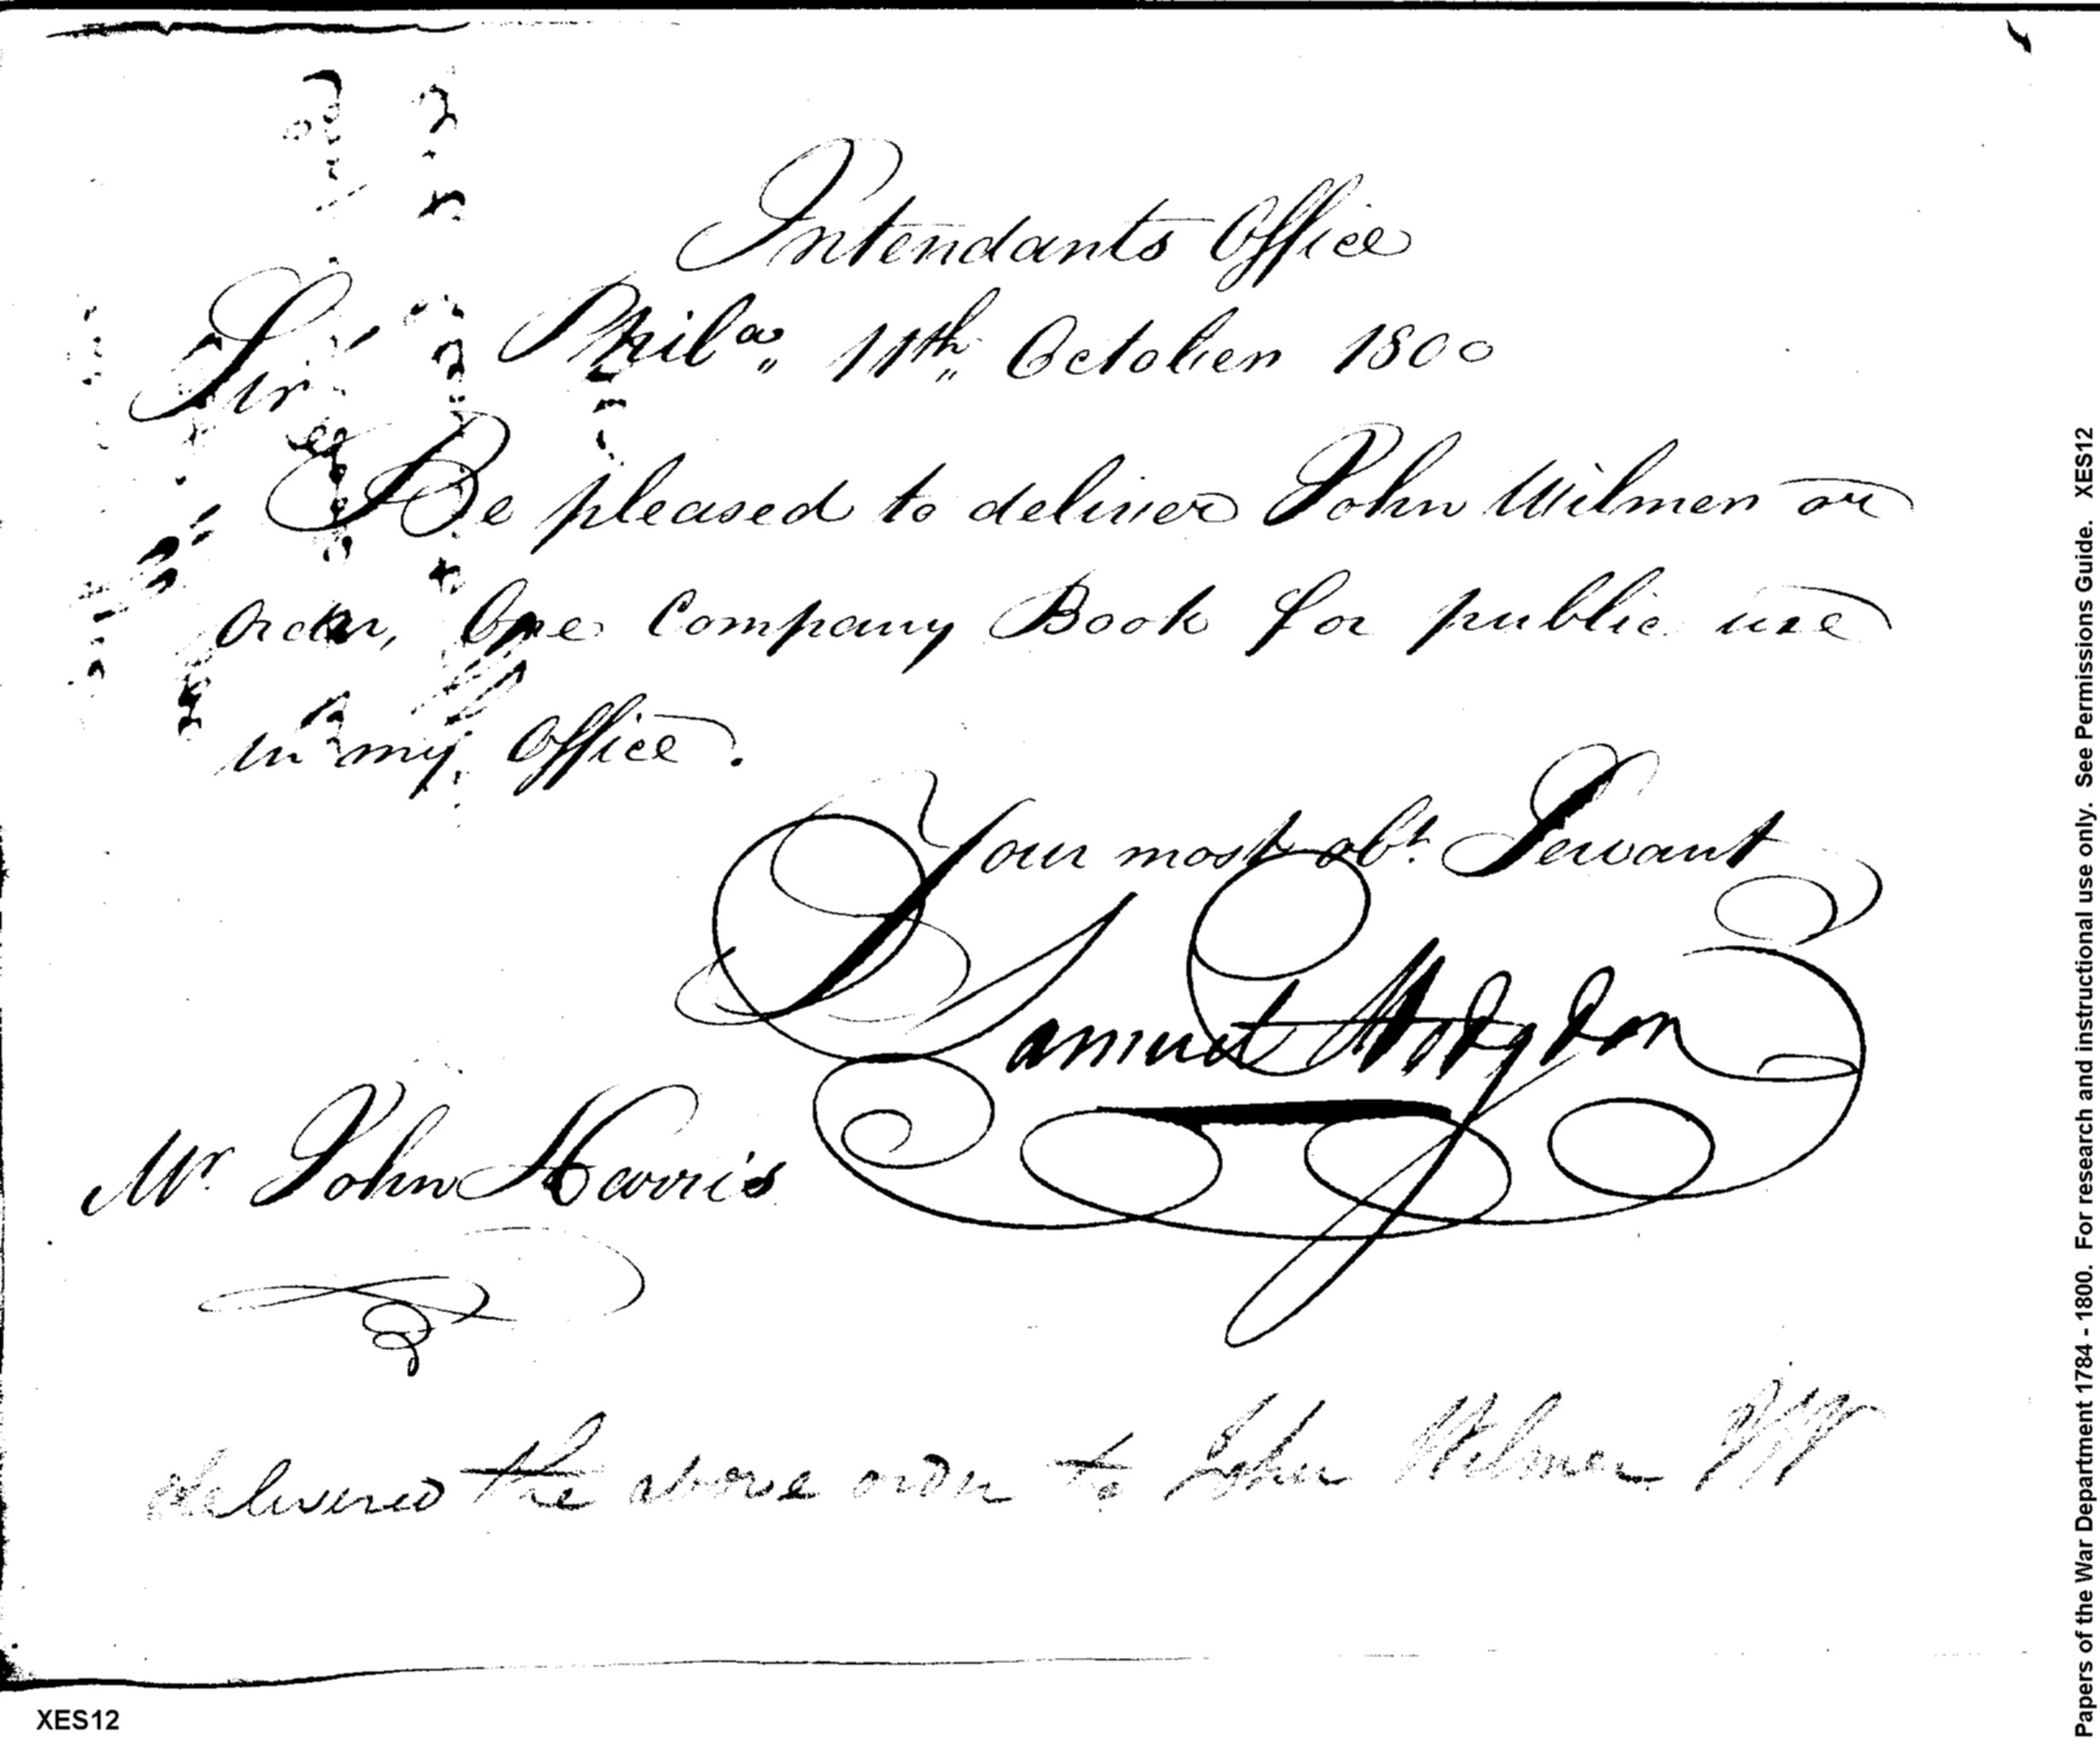 Intendants Office
Sir Phila,, 11th,, October 1800
Be pleased to deliver John Wilmer or
Order, One Company Book for public use
in my Office.
Your most obt. Servant
Samuel Hodgdon
Mr. John Harris
delivered the above order to John Wilmer
XES12
Papers of the War Department 1784 - 1800. For research and instructional use only. See Permissions Guide. XES12